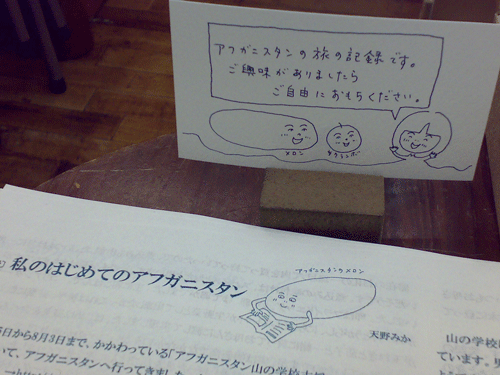 アフガニスタンの旅の記録です。
ご興味がありましたら
ご自由におもちください。
メロン
サクランボ
アフガニスタンのメロン
私のはじめてのアフガニスタン
天野みか
日から8月3日まで、かかわっている「アフガニスタン山の学校
いて、アフガニスタンへ行ってきました
山の学校
ています。